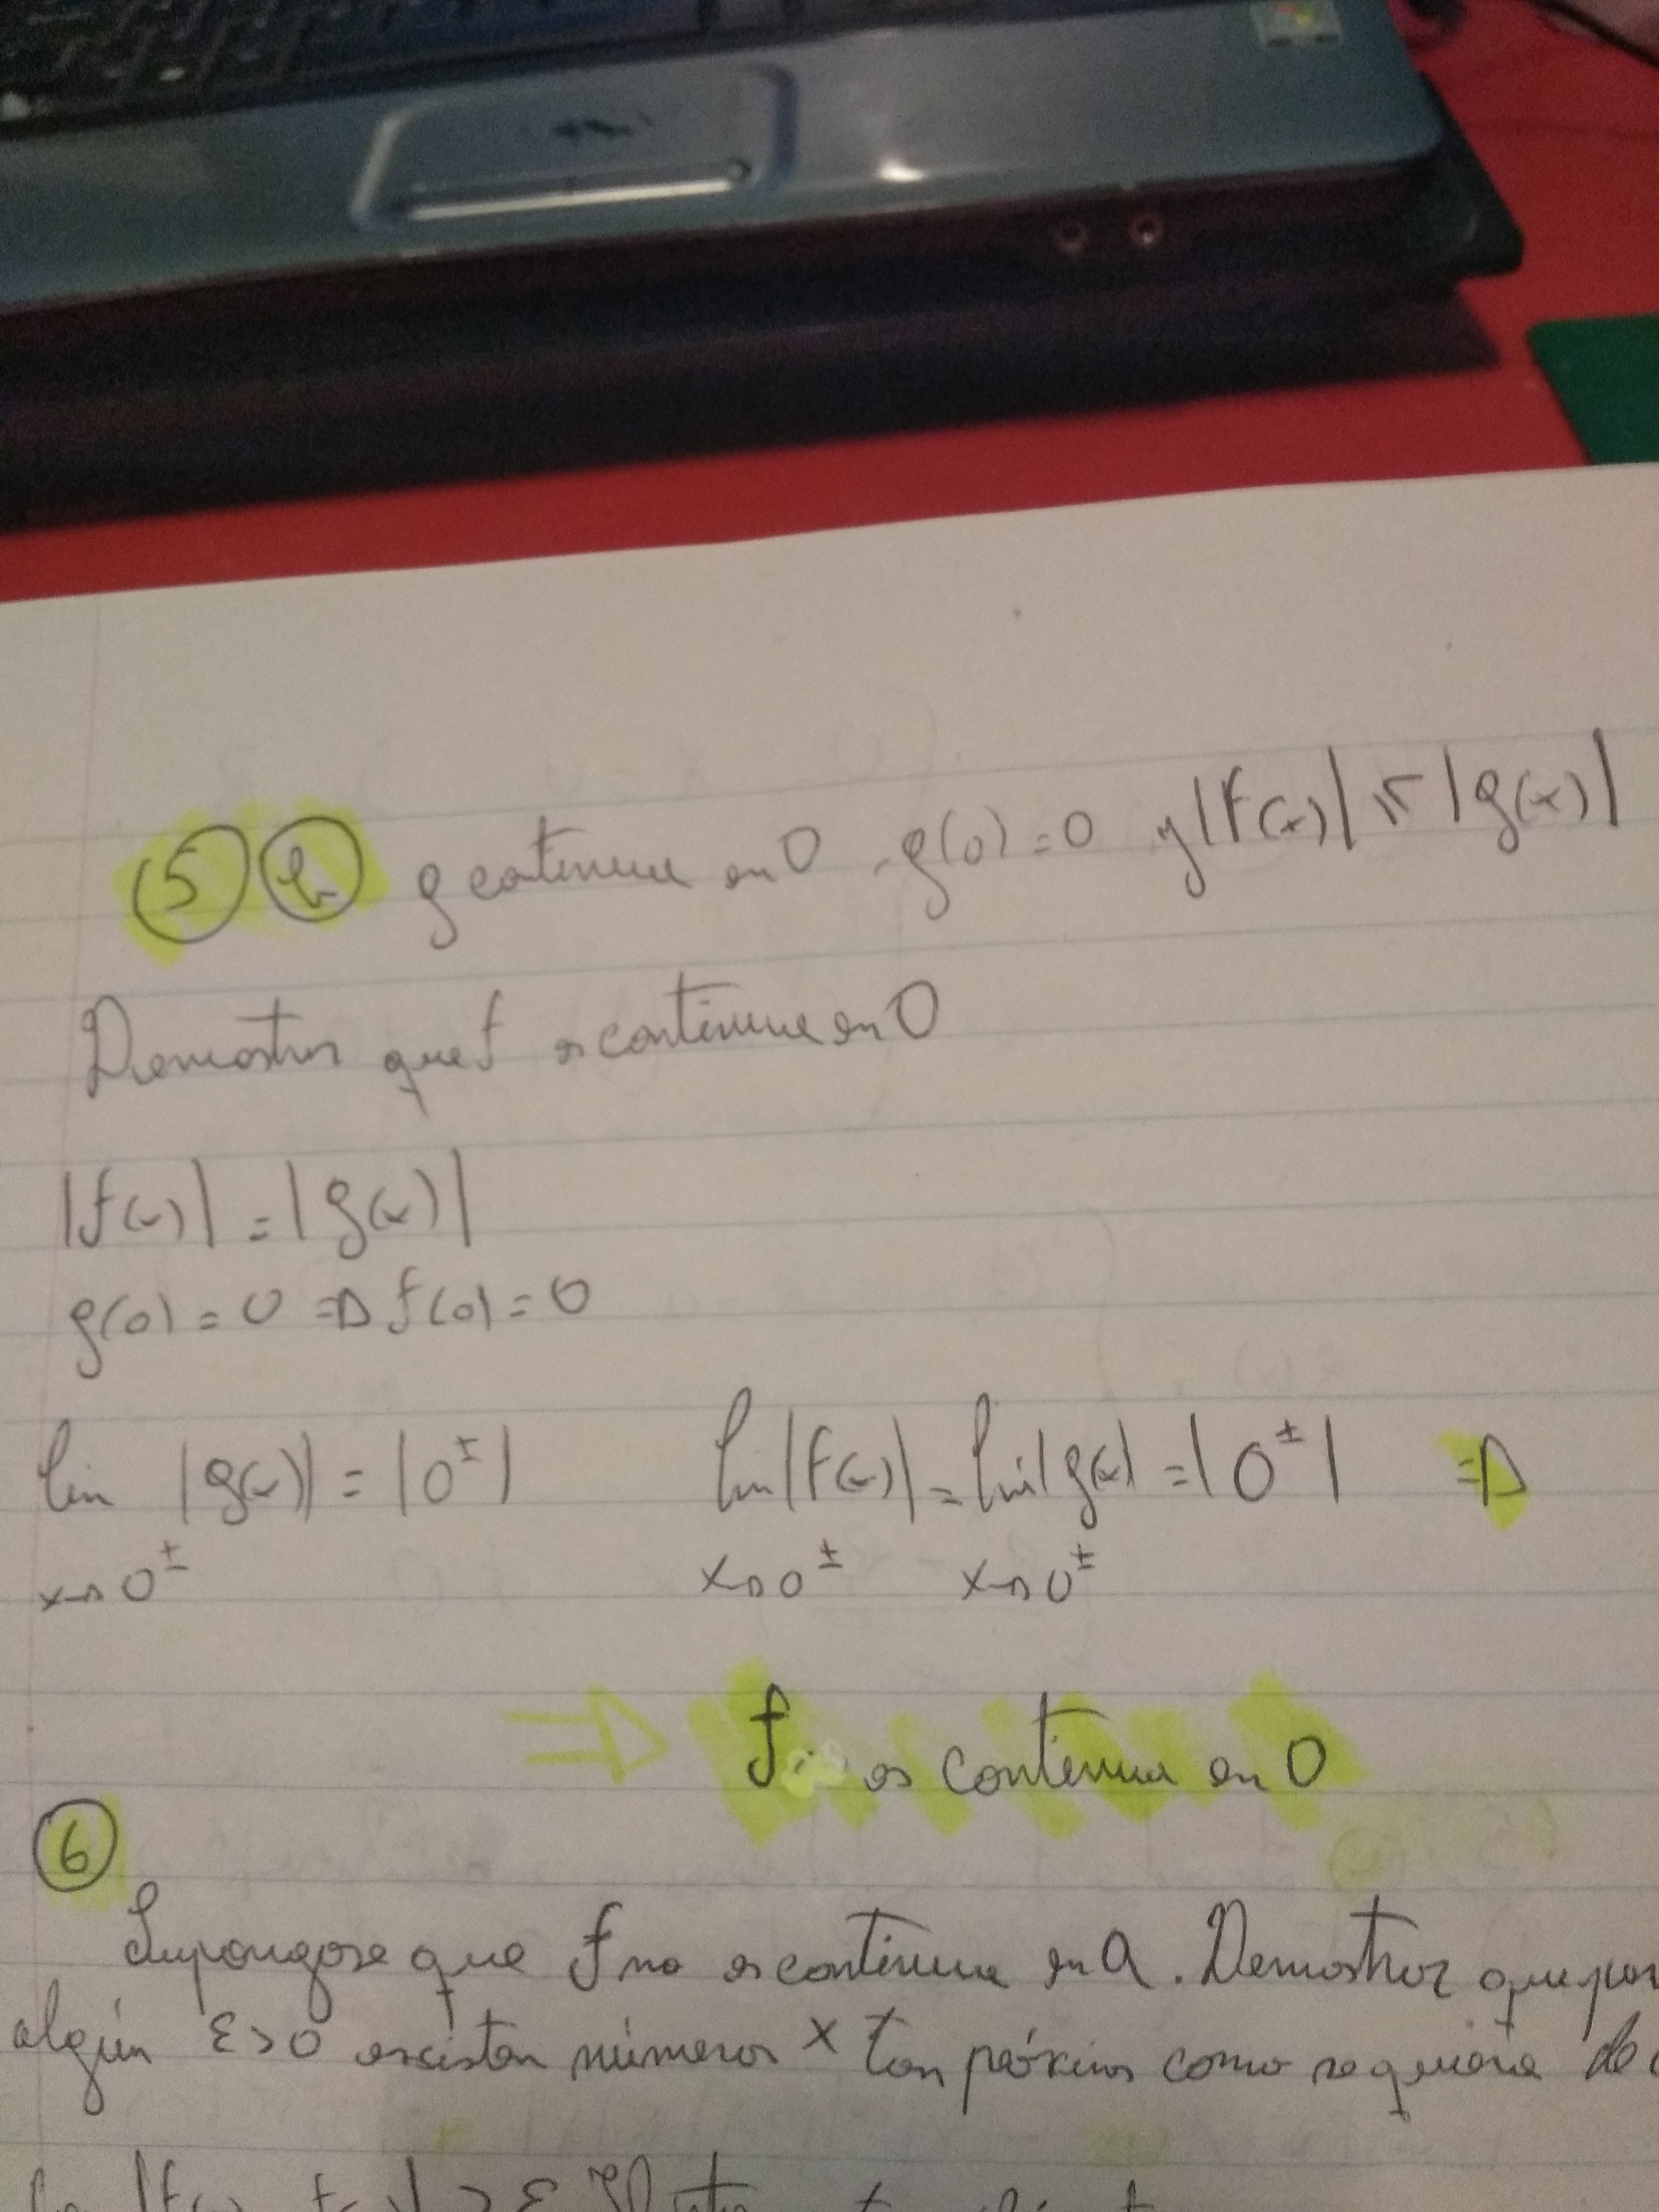 5 b g continua en 0 g(0)=0 y |f(x)| ≤ |g(x)|
Demostrar que f es continua en 0
|f(x)| = |g(x)|
g(0) = 0 ⇒ f(0) = 0
lim |g(x)| = |0±| lim |f(x)| = lim |g(x)| = |0±| ⇒
x→0± x→0± x→0±
⇒ f es continua en 0
6
Supongase que f no es continua en a. Demostrar que para
algún ε>0 existen números x tan próximos como se quiera de